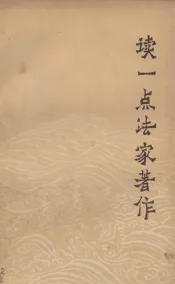 读一点法家著作